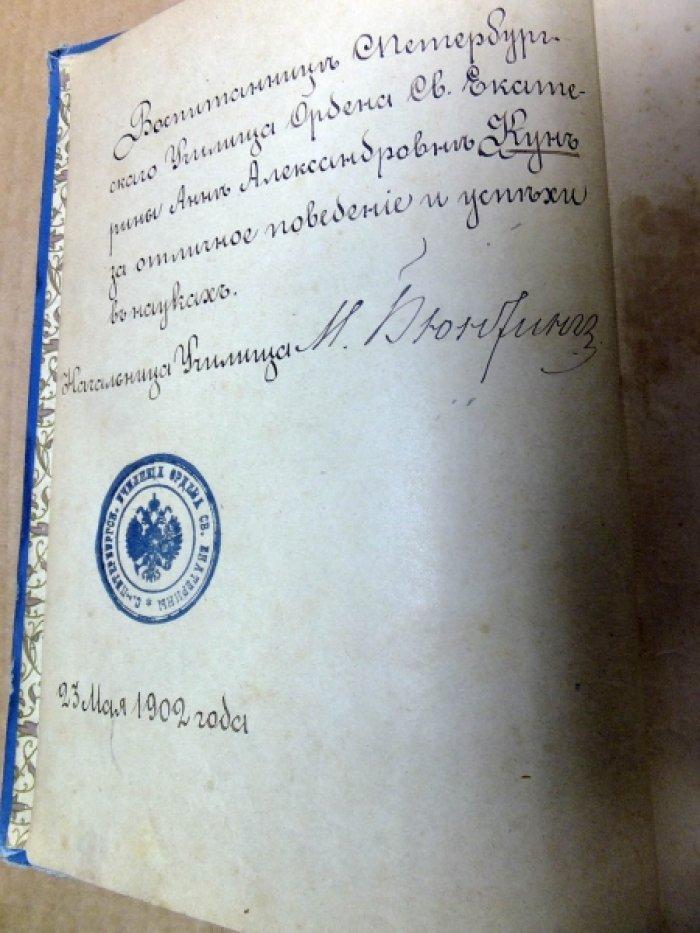 Воспитанницѣ СПетербург-
скаго Училища Ордена Св. Екате-
рины Аннѣ Александровнѣ Кунъ
за отличное поведенiе и успѣхи
въ наукахъ.
Начальница Училища М. Бюнтингъ
С.-ПЕТЕРБУРГСК. УЧИЛИЩА ОРДЕНА СВ. ЕКАТЕРИНЫ *
23 Мая 1902 года